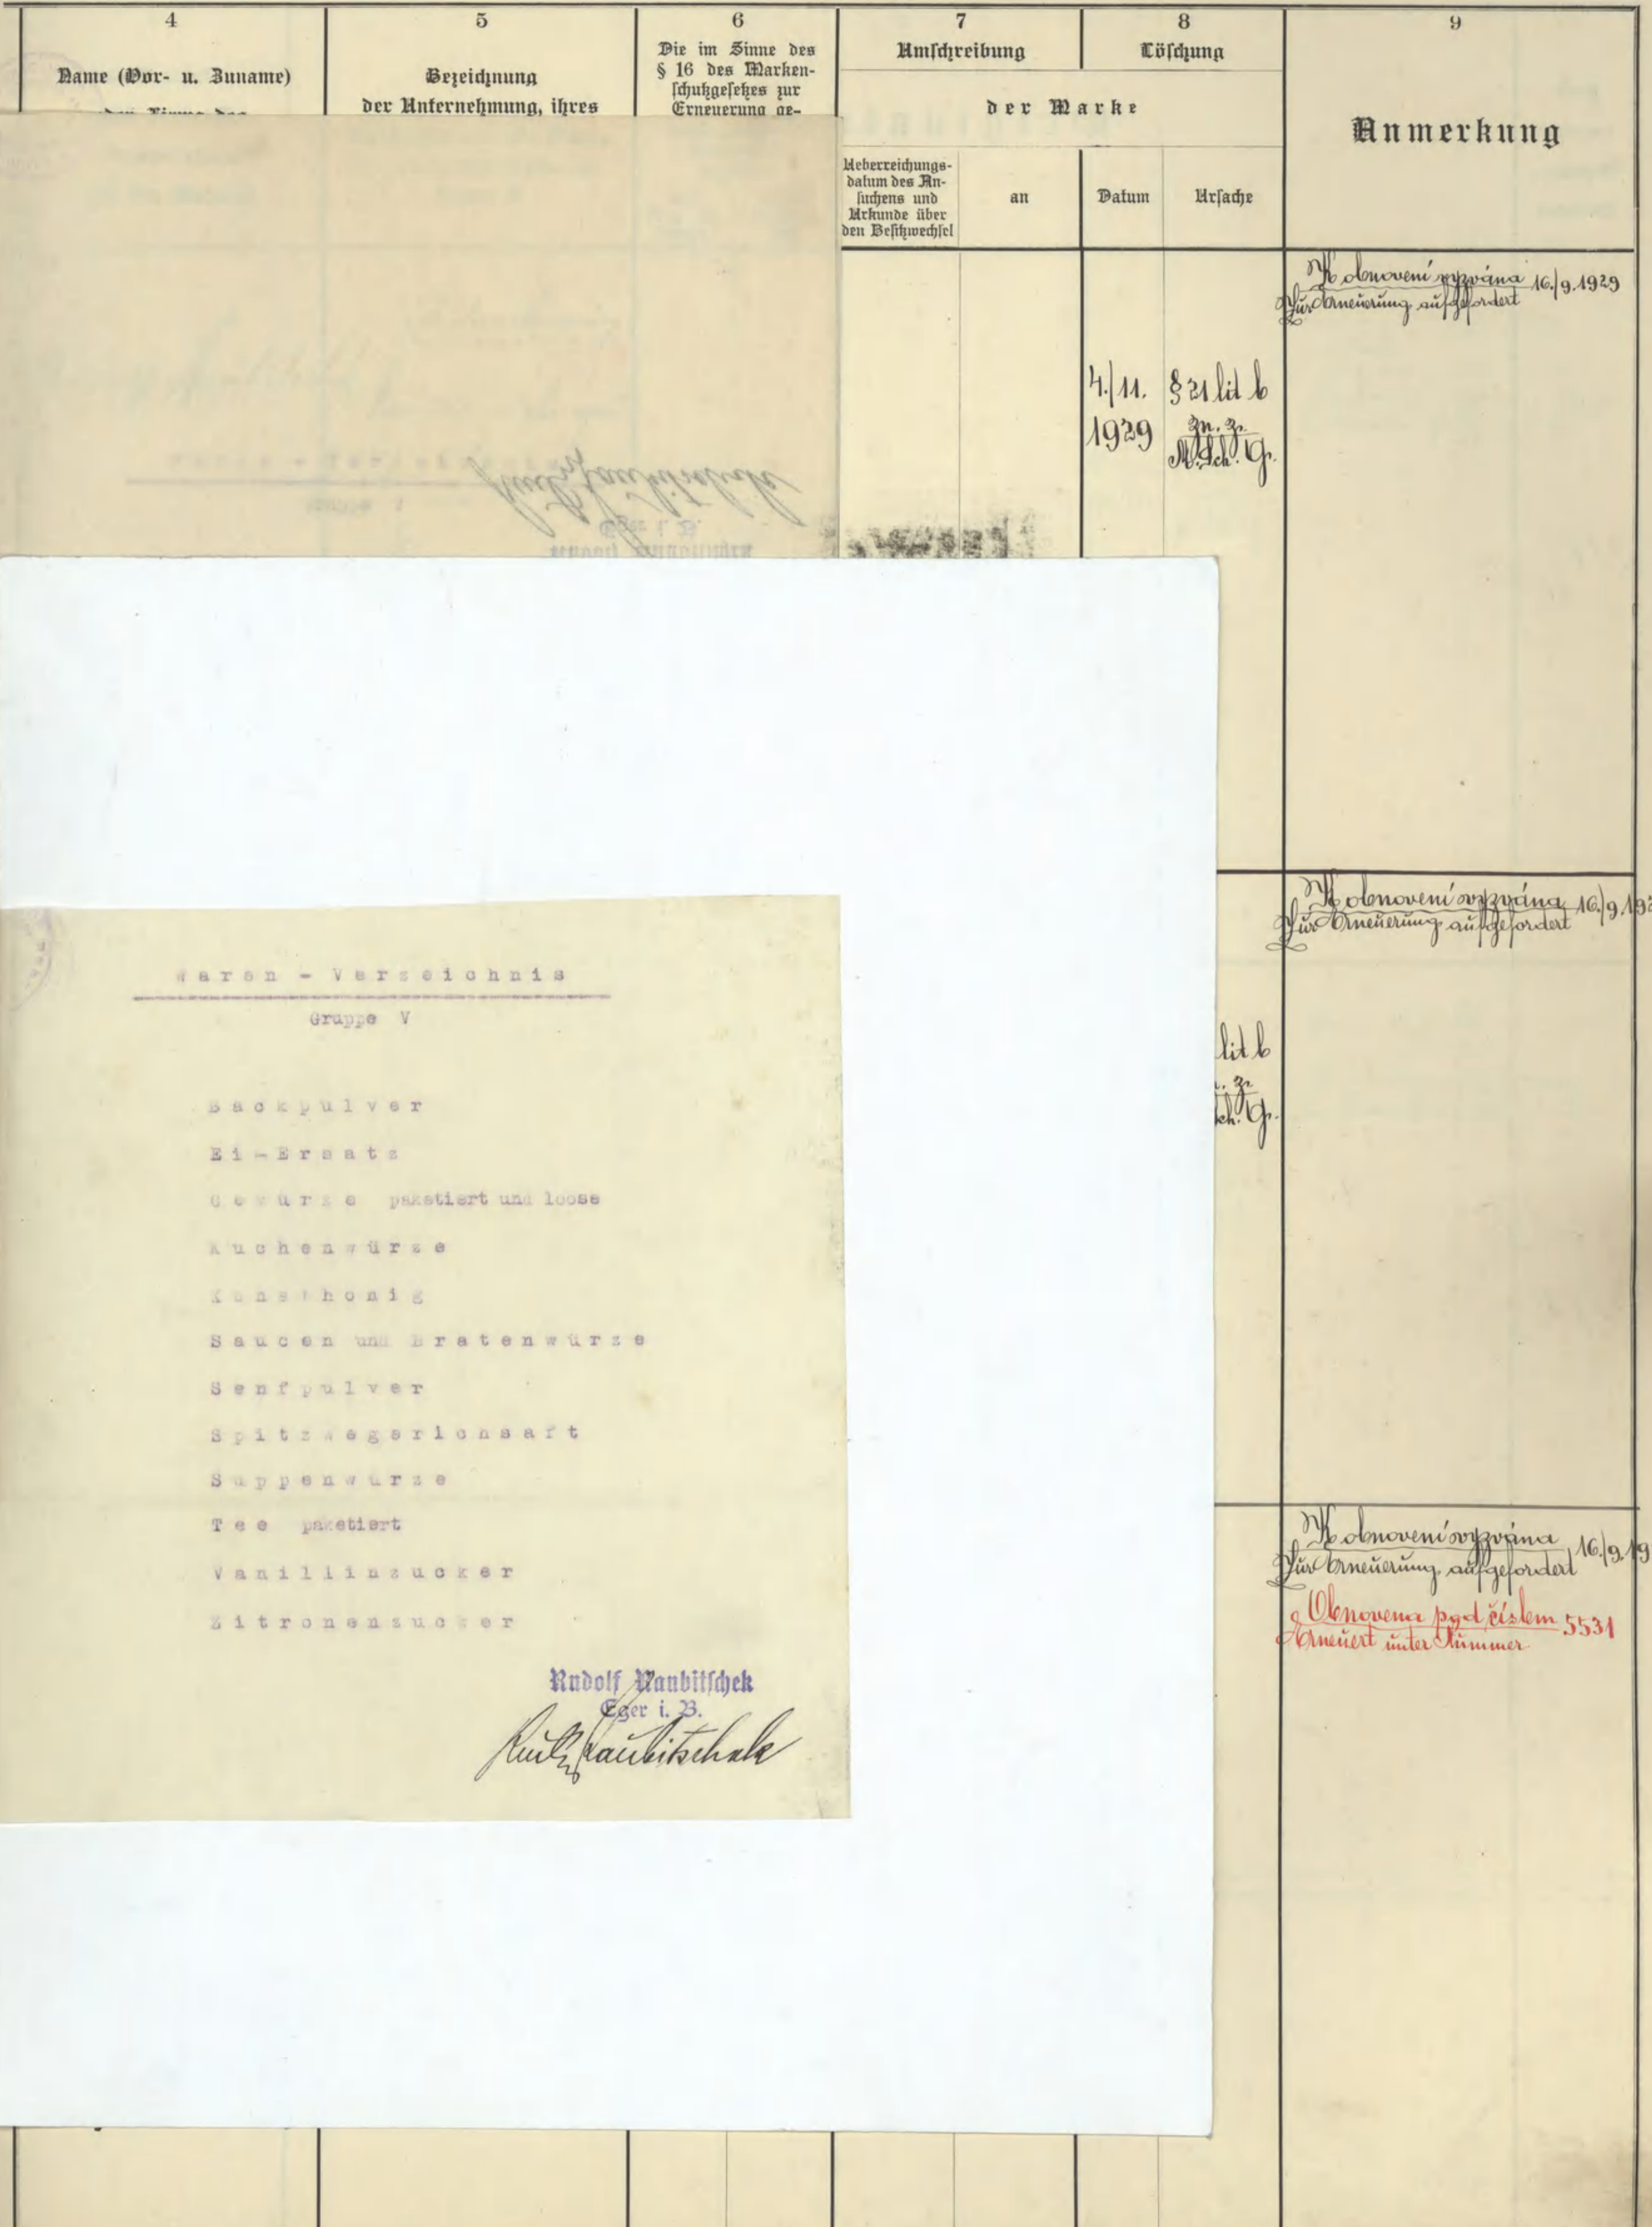 4
Name (Vor- u. Zuname)
5
Bezeichnung
der Unternehmung, ihres
6
Die im Sinne des
§ 16 des Marken-
schutzgesetzes zur
Erneuerung ge-
7
Umschreibung
8
Löschung
der Marke
Ueberreichungs-
datum des An-
suchens und
Urkunde über
den Besitzwechsel
an
Datum
Ursache
9
Anmerkung
K obnovení vyzvána 16./9.1929
Zur Erneuerung aufgefordert
4./11.
1929
§ 21 lit b
zn. z.
M. Sch. G.
K obnovení vyzvána 16./9.192
Zur Erneuerung aufgefordert
lit b
. z.
ch. G.
K obnovení vyzvána 16./9.19
Zur Erneuerung aufgefordert
Obnovena pod číslem 5531
Erneuert unter Nummer
Waren - Verzeichnis
Gruppe V
Backpulver
Ei-Ersatz
Gewürze paketiert und loose
Kuchenwürze
Kunsthonig
Saucen und Bratenwürze
Senfpulver
Spitzwegerichsaft
Suppenwürze
Tee paketiert
Vanillinzucker
Zitronenzucker
Rudolf Naubitschek
Eger i. B.